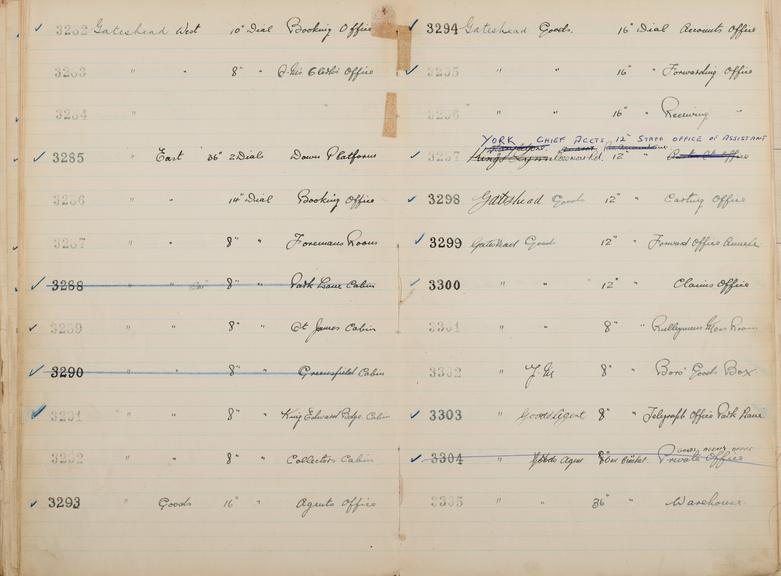 3282 Gateshead West 10" Dial Booking Office
3283 " " 8" " Office
3284 "
3285 " East 36" 2 Dials Down Platform
3286 " " 14" Dial Booking Office
3287 " " 8" " Foremans Room
3288 " " 8" " Park Lane Cabin
3289 " " 8" " St James Cabin
3290 " " 8" " Greensfield Cabin
3291 " " 8" " King Edward Bdge. Cabin
3292 " " 8" " Collectors Cabin
3293 " Goods 16" " Agents Office
3294 Gateshead Goods. 16" Dial Accounts Office
3295 " " 16" " Forwarding Office
3296 " " 16" " Receiving "
YORK CHIEF ACCTS, 12" STAFF OFFICE OF ASSISTANT
3297 Kings Lynn 12" " Office
3298 Gateshead Goods 12" " Carting Office
3299 Gateshead Goods 12" " Forward Office Annexe
3300 " " 12" " Claims Office
3301 " " 8" " Rulleymens Mess Room
3302 " Y.M 8" " Boro' Goods Box.
3303 " Goods Agent 8" " Telegraph Office Park Lane
GOODS AGENTS OFFICE
3304 " Goods Agent 8" Private Office
3305 " " 36" " Warehouse.